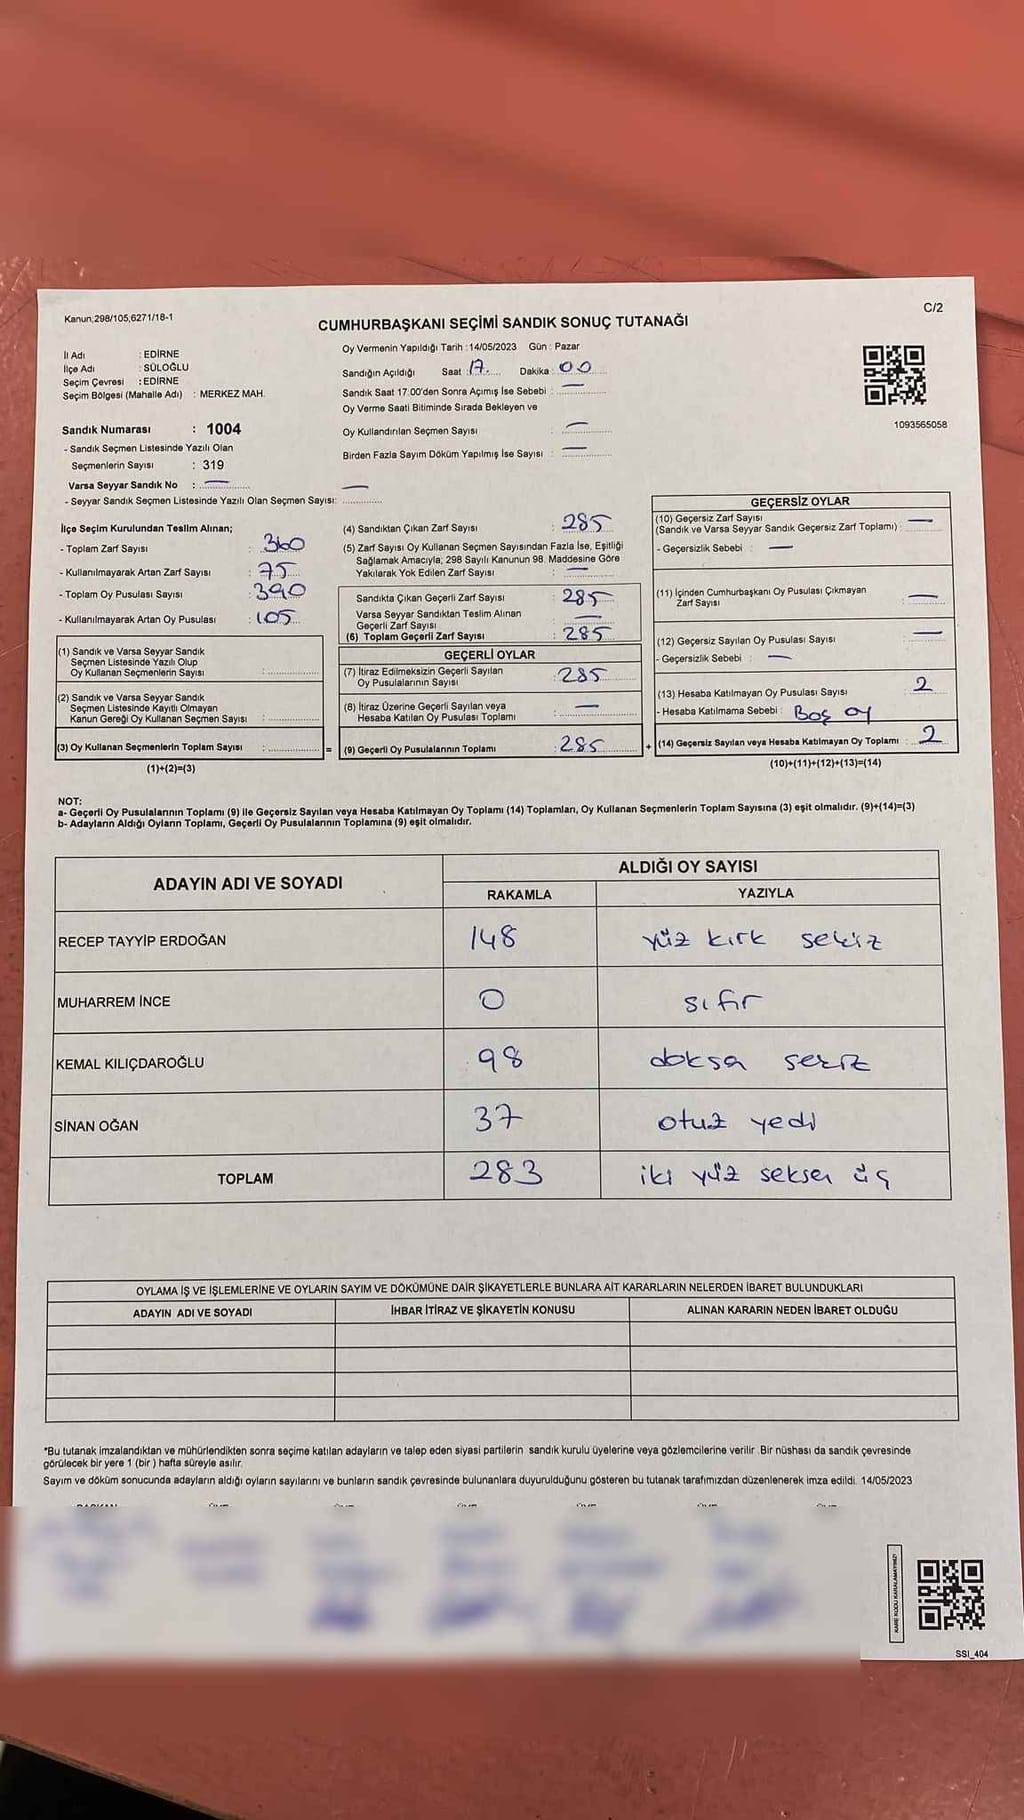 Kanun;298/105,6271/18-1
C/2
CUMHURBAŞKANI SEÇİMİ SANDIK SONUÇ TUTANAĞI
İl Adı : EDİRNE
İlçe Adı : SÜLOĞLU
Seçim Çevresi : EDİRNE
Seçim Bölgesi (Mahalle Adı) : MERKEZ MAH.
Oy Vermenin Yapıldığı Tarih :14/05/2023 Gün : Pazar
Sandığın Açıldığı Saat : 17 Dakika : 00
Sandık Saat 17:00'den Sonra Açımış İse Sebebi : —
Oy Verme Saati Bitiminde Sırada Bekleyen ve
Oy Kullandırılan Seçmen Sayısı : —
Birden Fazla Sayım Döküm Yapılmış İse Sayısı : —
1093565058
Sandık Numarası : 1004
- Sandık Seçmen Listesinde Yazılı Olan
Seçmenlerin Sayısı : 319
Varsa Seyyar Sandık No : —
- Seyyar Sandık Seçmen Listesinde Yazılı Olan Seçmen Sayısı: —
İlçe Seçim Kurulundan Teslim Alınan;
- Toplam Zarf Sayısı : 360
- Kullanılmayarak Artan Zarf Sayısı : 75
- Toplam Oy Pusulası Sayısı : 390
- Kullanılmayarak Artan Oy Pusulası : 105
(1) Sandık ve Varsa Seyyar Sandık
Seçmen Listesinde Yazılı Olup
Oy Kullanan Seçmenlerin Sayısı :
(2) Sandık ve Varsa Seyyar Sandık
Seçmen Listesinde Kayıtlı Olmayan
Kanun Gereği Oy Kullanan Seçmen Sayısı :
(3) Oy Kullanan Seçmenlerin Toplam Sayısı : =
(1)+(2)=(3)
(4) Sandıktan Çıkan Zarf Sayısı : 285
(5) Zarf Sayısı Oy Kullanan Seçmen Sayısından Fazla İse, Eşitliği
Sağlamak Amacıyla; 298 Sayılı Kanunun 98. Maddesine Göre
Yakılarak Yok Edilen Zarf Sayısı : —
Sandıkta Çıkan Geçerli Zarf Sayısı : 285
Varsa Seyyar Sandıktan Teslim Alınan
Geçerli Zarf Sayısı : —
(6) Toplam Geçerli Zarf Sayısı : 285
GEÇERLİ OYLAR
(7) İtiraz Edilmeksizin Geçerli Sayılan
Oy Pusulalarının Sayısı : 285
(8) İtiraz Üzerine Geçerli Sayılan veya
Hesaba Katılan Oy Pusulası Toplamı : —
(9) Geçerli Oy Pusulalarının Toplamı : 285 +
GEÇERSİZ OYLAR
(10) Geçersiz Zarf Sayısı
(Sandık ve Varsa Seyyar Sandık Geçersiz Zarf Toplamı) : —
- Geçersizlik Sebebi : —
(11) İçinden Cumhurbaşkanı Oy Pusulası Çıkmayan
Zarf Sayısı : —
(12) Geçersiz Sayılan Oy Pusulası Sayısı : —
- Geçersizlik Sebebi : —
(13) Hesaba Katılmayan Oy Pusulası Sayısı : 2
- Hesaba Katılmama Sebebi : Boş oy
(14) Geçersiz Sayılan veya Hesaba Katılmayan Oy Toplamı : 2
(10)+(11)+(12)+(13)=(14)
NOT:
a- Geçerli Oy Pusulalarının Toplamı (9) ile Geçersiz Sayılan veya Hesaba Katılmayan Oy Toplamı (14) Toplamları, Oy Kullanan Seçmenlerin Toplam Sayısına (3) eşit olmalıdır. (9)+(14)=(3)
b- Adayların Aldığı Oyların Toplamı, Geçerli Oy Pusulalarının Toplamına (9) eşit olmalıdır.
ADAYIN ADI VE SOYADI ALDIĞI OY SAYISI
RAKAMLA YAZIYLA
RECEP TAYYİP ERDOĞAN 148 yüz kırk sekiz
MUHARREM İNCE 0 sıfır
KEMAL KILIÇDAROĞLU 98 doksa sekiz
SİNAN OĞAN 37 otuz yedi
TOPLAM 283 iki yüz seksen üç
OYLAMA İŞ VE İŞLEMLERİNE VE OYLARIN SAYIM VE DÖKÜMÜNE DAİR ŞİKAYETLERLE BUNLARA AİT KARARLARIN NELERDEN İBARET BULUNDUKLARI
ADAYIN ADI VE SOYADI İHBAR İTİRAZ VE ŞİKAYETİN KONUSU ALINAN KARARIN NEDEN İBARET OLDUĞU
*Bu tutanak imzalandıktan ve mühürlendikten sonra seçime katılan adayların ve talep eden siyasi partilerin sandık kurulu üyelerine veya gözlemcilerine verilir .Bir nüshası da sandık çevresinde
görülecek bir yere 1 (bir ) hafta süreyle asılır.
Sayım ve döküm sonucunda adayların aldığı oyların sayılarını ve bunların sandık çevresinde bulunanlara duyurulduğunu gösteren bu tutanak tarafımızdan düzenlenerek imza edildi. 14/05/2023
KARE KODU KARALAMAYINIZ!
SSI_404